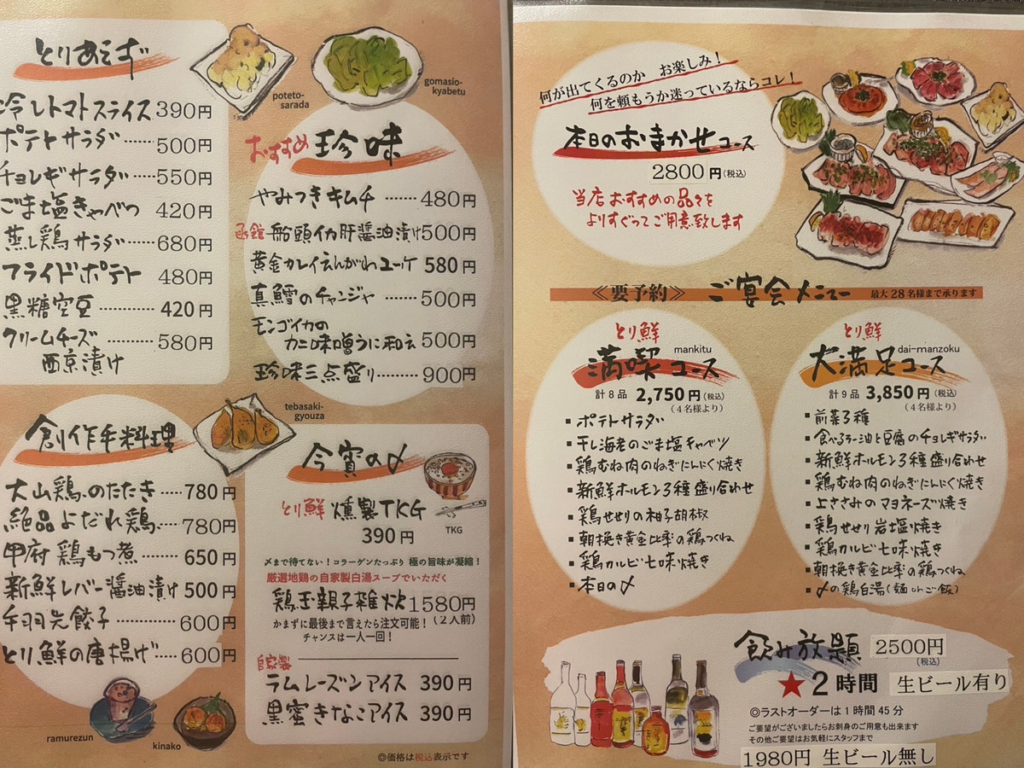 とりあえず
冷しトマトスライス 390円
ポテトサラダ……500円
チョレギサラダ……550円
ごま塩きゃべつ 420円
蒸し鶏サラダ……680円
フライドポテト 480円
黒糖空豆………420円
クリームチーズ
西京漬け……580円
poteto-
sarada
gomasio-
kyabetu
おすすめ 珍味
やみつきキムチ……480円
函館 船頭イカ肝醤油漬け500円
黄金カレイえんがわユーケ 580円
真鱈のチャンジャ……500円
モンゴイカの
カニ味噌うに和え 500円
珍味三点盛り………900円
創作手料理
tebasaki-
gyouza
大山鶏のたたき……780円
絶品よだれ鶏……780円
甲府 鶏もつ煮………650円
新鮮レバー醤油漬け 500円
手羽先餃子………600円
とり鮮の唐揚げ……600円
ramurezun
kinako
今宵の〆
とり鮮 燻製TKG
390円
TKG
〆まで待てない！コラーゲンたっぷり 極の旨味が凝縮！
厳選地鶏の自家製白湯スープでいただく
鶏玉親子雑炊 1580円
かまずに最後まで言えたら注文可能！（2人前）
チャンスは一人一回！
自家製
ラムレーズンアイス 390円
黒蜜きなこアイス 390円
◎価格は税込表示です
何が出てくるのか お楽しみ！
何を頼もうか迷っているならコレ！
本日のおまかせコース
2800円(税込)
当店おすすめの品々を
よりすぐってご用意致します
≪要予約≫ ご宴会メニュー 最大28名様まで承ります
とり鮮
満喫コース
mankitu
計8品 2,750円(税込)
（4名様より）
▪ポテトサラダ
▪干し海老のごま塩キャベツ
▪鶏むね肉のねぎにんにく焼き
▪新鮮ホルモン3種盛り合わせ
▪鶏せせりの柚子胡椒
▪朝挽き黄金比率の鶏つくね
▪鶏カルビ七味焼き
▪本日の〆
とり鮮
大満足コース
dai-manzoku
計9品 3,850円(税込)
（4名様より）
▪前菜3種
▪食べるラー油と豆腐のチョレギサラダ
▪新鮮ホルモン3種盛り合わせ
▪鶏むね肉のねぎにんにく焼き
▪上ささみのマヨネーズ焼き
▪鶏せせり岩塩焼き
▪鶏カルビ七味焼き
▪朝挽き黄金比率の鶏つくね
▪〆の鶏白湯(麺orご飯)
飲み放題 2500円
(税込)
★2時間 生ビール有り
◎ラストオーダーは1時間45分
ご要望がございましたらお刺身のご用意も出来ます
その他ご要望はお気軽にスタッフまで
1980円 生ビール無し